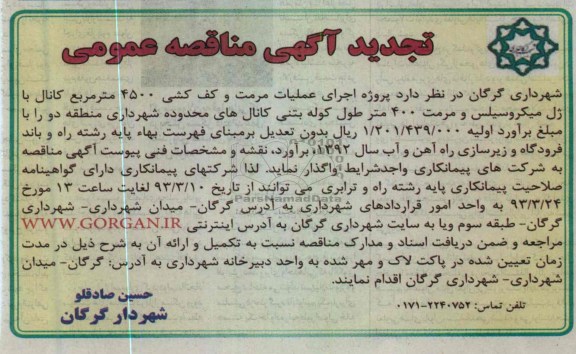 تجدید آگهی مناقصه عمومی
شهرداری گرگان در نظر دارد پروژه اجرای عملیات مرمت و کف کشی ۴۵۰۰ مترمربع کانال با
ژل میکروسیلس و مرمت ۴۰۰ متر طول کوله بتنی کانال های محدوده شهرداری منطقه دو را با
مبلغ برآورد اولیه ۱/۲۰۱/۴۳۹/۰۰۰ ریال بدون تعدیل برمبنای فهرست بهاء پایه رشته راه و باند
فرودگاه و زیرسازی راه آهن و آب سال ۱۳۹۲، برآورد، نقشه و مشخصات فنی پیوست آگهی مناقصه
به شرکت های پیمانکاری واجدشرایط واگذار نماید. لذا شرکتهای پیمانکاری دارای گواهینامه
صلاحیت پیمانکاری پایه رشته راه و ترابری می توانند از تاریخ ۹۳/۳/۱۰ لغایت ساعت ۱۳ مورخ
۹۳/۳/۲۴ به واحد امور قراردادهای شهرداری به آدرس گرگان- میدان شهرداری- شهرداری
گرگان- طبقه سوم ویا به سایت شهرداری گرگان به آدرس اینترنتی WWW.GORGAN.IR
مراجعه و ضمن دریافت اسناد و مدارک مناقصه نسبت به تکمیل و ارائه آن به شرح ذیل در مدت
زمان تعیین شده در پاکت لاک و مهر شده به واحد دبیرخانه شهرداری به آدرس: گرگان- میدان
شهرداری- شهرداری گرگان اقدام نمایند.
تلفن تماس: ۲۲۴۰۷۵۲-۰۱۷۱
حسین صادقلو
شهردار گرگان
ParsNamadData